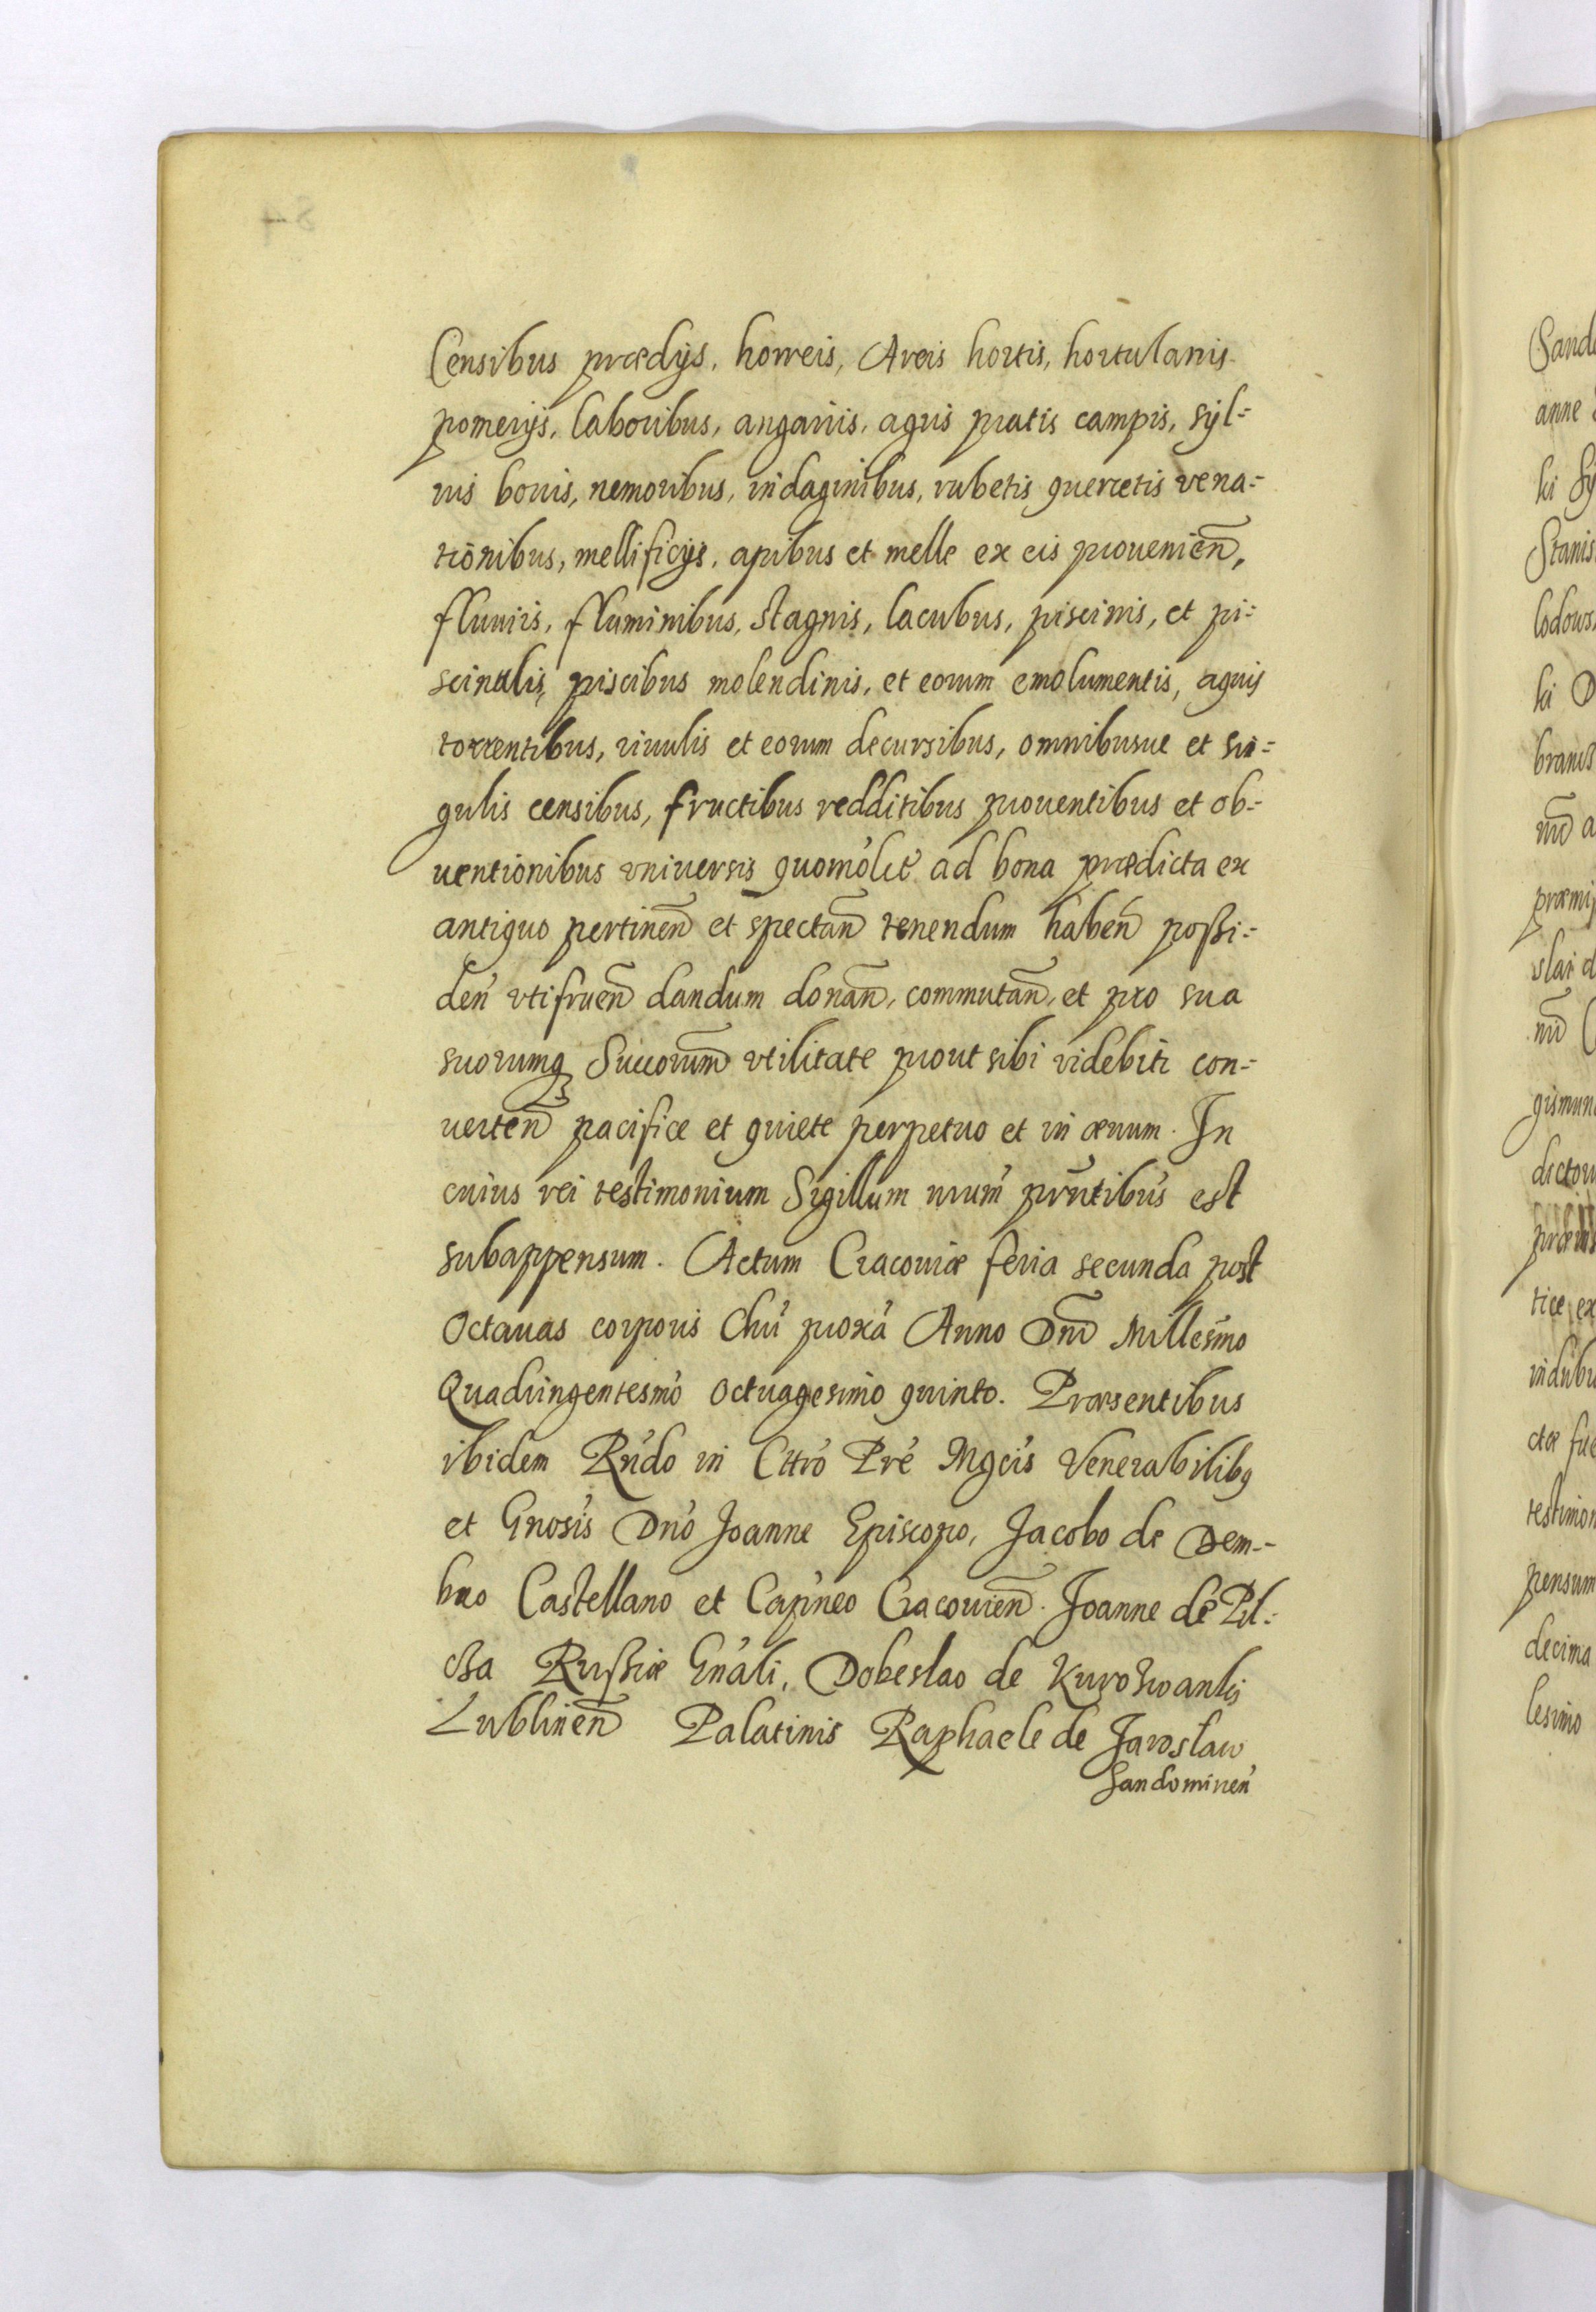 Censibus prædijs, horreis, Areis hortis, hortulanis
pomerijs, laboribus, angariis, agris pratis campis, syl=
uis boris, nemoribus, indaginibus, rubetis quercetis vena=
tiōnibus, mellificijs, apibus et melle ex eis prouenien̄,
fluuiis, fluminibus, stagnis, lacubus, piscinis, et pi=
scinulis, piscibus molendinis, et eorum emolumentis, aquis
torrentibus, riuulis et eorum decursibus, omnibusue et sin=
gulis censibus, fructibus redditibus prouentibus et ob=
uentionibus vniuersis quomo'lit' ad bona prædicta ex
antiquo pertinen̄ et spectan̄ tenendum haben̄ poßi=
den' vtifruen̄ dandum donan̄, commutan̄, et pro sua
suorumq Succorum̄ vtilitate prout sibi videbiti con=
uerten̄ pacifice et quiete perpetuo et in æuum. In
cuius rei testimonium Sigillum nrum' prn̄tibus' est
subappensum. Actum Cracouiæ feria secunda post
Octauas corporis Chri' proxa' Anno Dni̅ Millesi'mo
Quadringentesmo' octuagesimo quinto. Præsentibus
ibidem Rn'do in Chro' Pre' Mgcis' Venerabilibq
et Gnosis' Dno' Joanne Episcopo, Jacobo de Dem=
bno Castellano et Capi'neo Cracouien̄. Joanne de Pil=
cza Rußiæ Gna'li, Dobeslao de Kurozwanki
Lublinen̄ Palatinis Raphaele de Jaroslaw
Sandomiren'
84